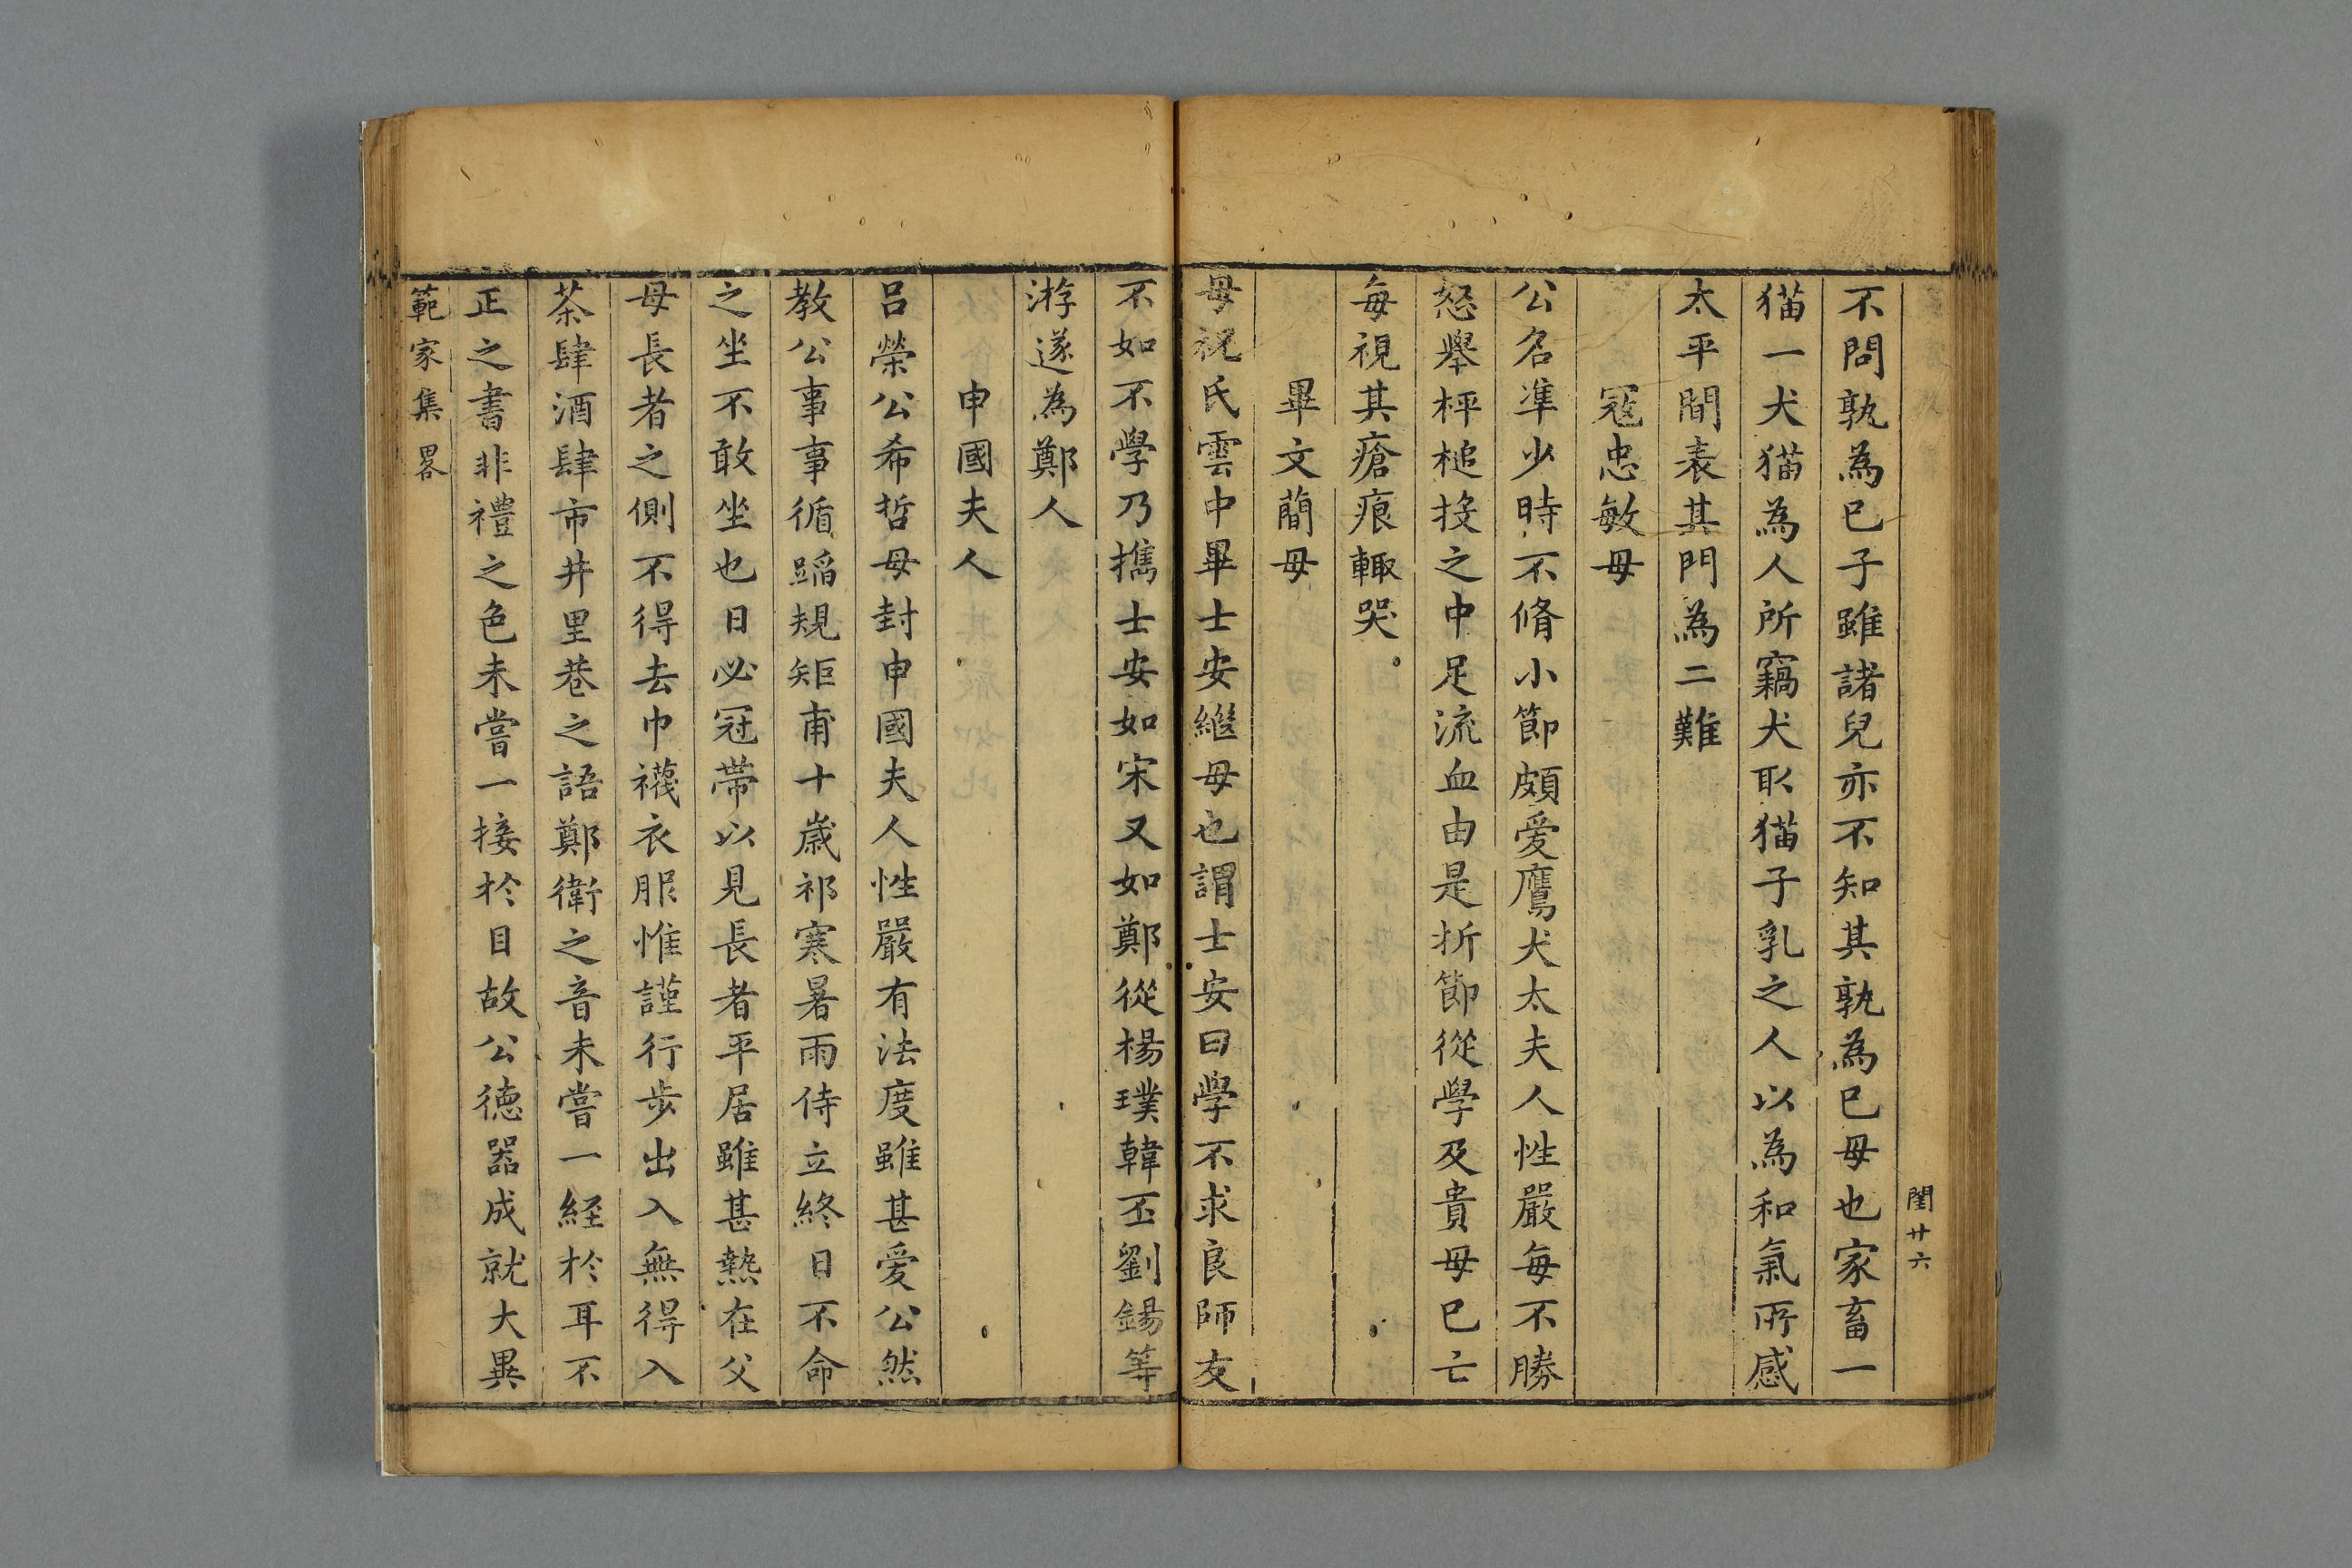 閨廿六
不問孰為已子雖諸兒亦不知其孰為已母也家畜一
猫一犬猫為人所竊犬取猫子乳之人以為和氣所感
太平間表其門為二難
寇忠敏母
公名準少時不脩小節頗愛鷹犬太夫人性嚴每不勝
怒舉枰槌投之中足流血由是折節從學及貴母已亡
每視其瘡痕輒哭
畢文蕳母
母祝氏雲中畢士安繼母也謂士安曰學不求良師友
不如不學乃㩗士安如宋又如鄭從楊璞韓丕劉錫等
游遂為鄭人
申國夫人
吕榮公希哲母封申國夫人性嚴有法度雖甚愛公然
教公事事循蹈規矩甫十歲祁寒暑雨侍立終日不命
之坐不敢坐也日必冠帶以見長者平居雖甚熱在父
母長者之側不得去巾襪衣服惟謹行步出入無得入
茶肆酒肆市井里巷之語鄭衛之音未嘗一経於耳不
正之書非禮之色未嘗一接於目故公德器成就大異
範家集畧